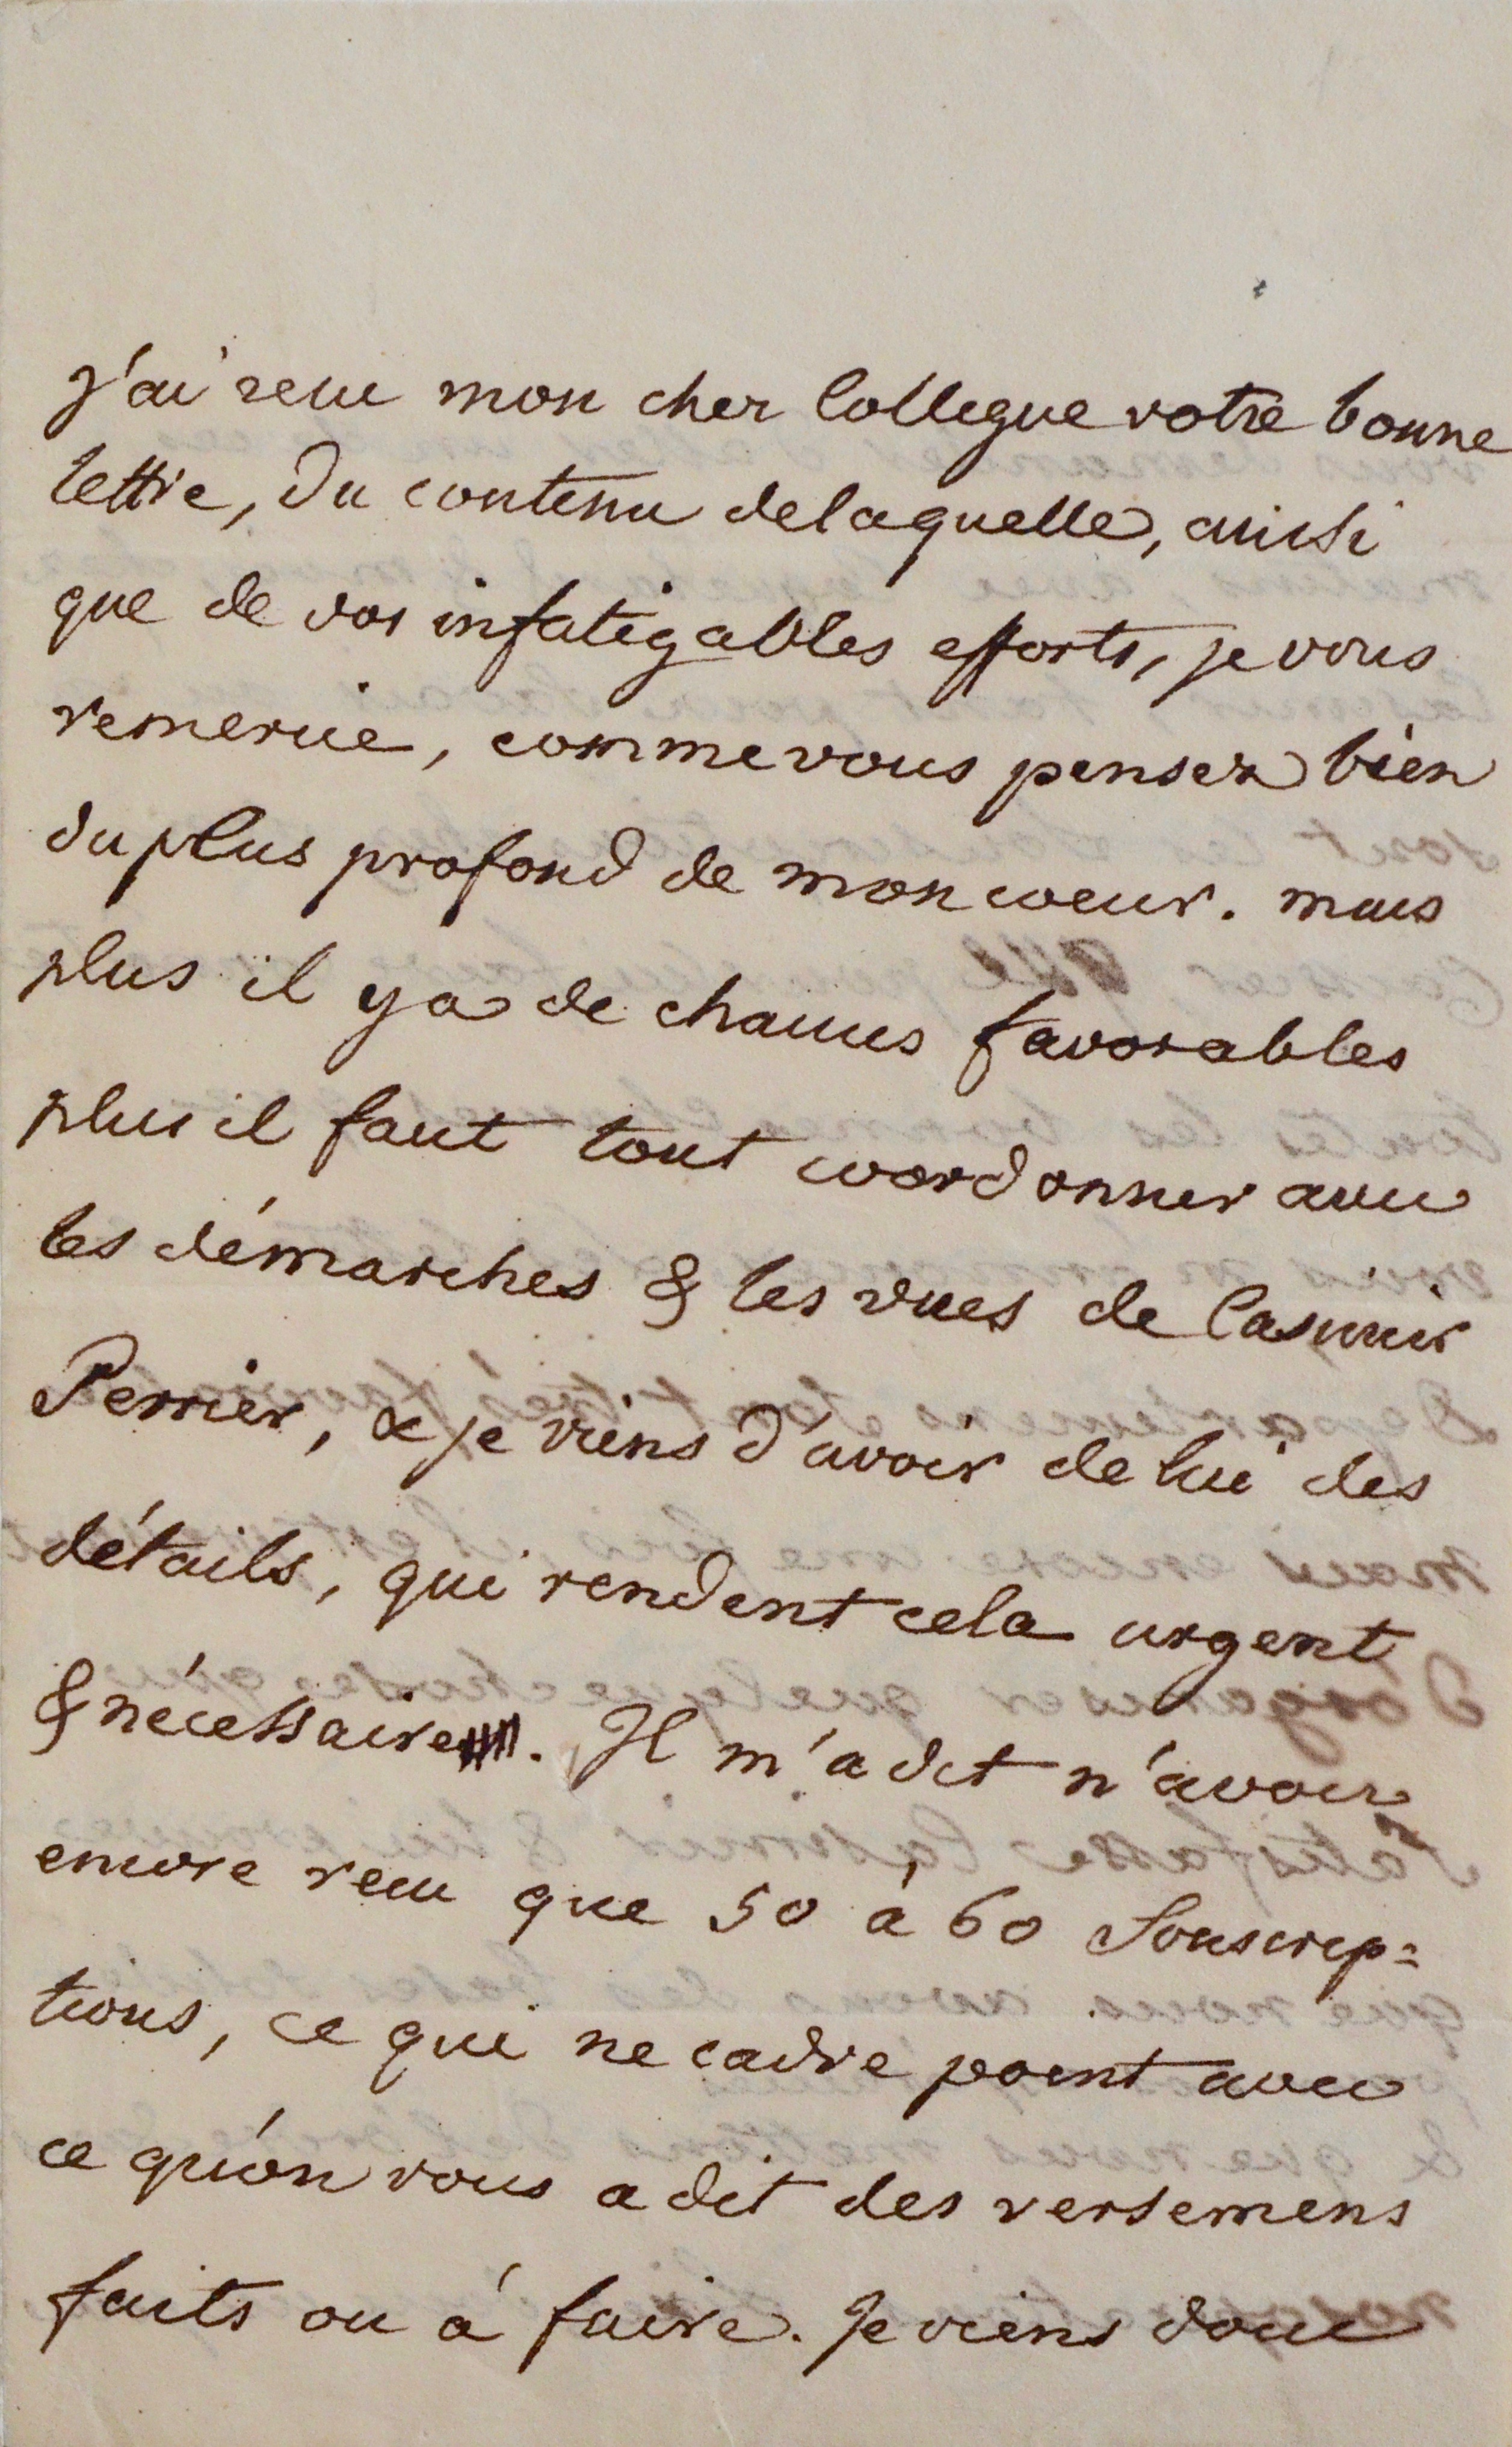 j'ai recu mon cher Collegue votre bonne
lettre, du contenu delaquelle, ainsi
que de vos infatigables efforts, je vous
remercie, comme vous pensez bien
du plus profond de mon coeur. mais
plus il y a de chances favorables
plus il faut tout coordonner avec
les démarches & les vues de Casimir
Perrier, & je viens d'avoir de lui des
détails, qui rendent cela urgent
& nécessaire. Il m'a dit n'avoir
encore recu que 50 à 60 Souscrip=
tions, ce qui ne cadre point avec
ce qu'on vous a dit des versemens
faits ou à faire. Je viens donc